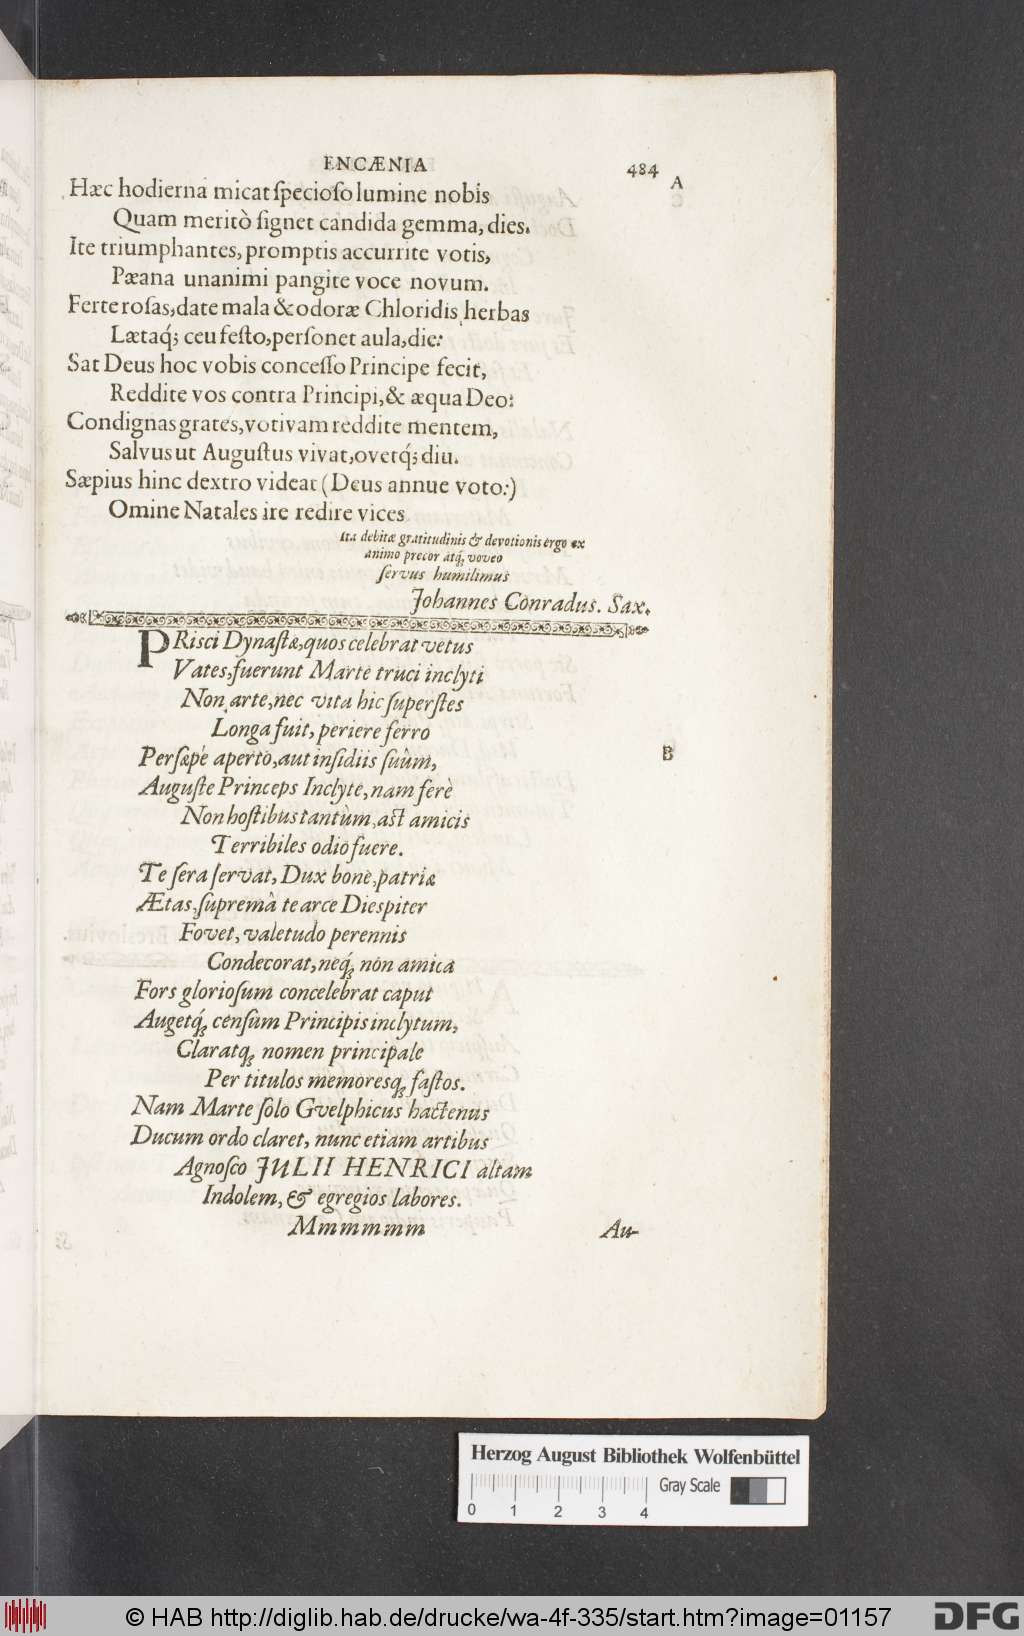 ENCÆNIA 484
A
Hæc hodierna micat ſpecioſo lumine nobis
Quam meritò ſignet candida gemma, dies.
Ite triumphantes, promptis accurrite votis,
Pæana unanimi pangite voce novum.
Ferte roſas, date mala & odoræ Chloridis herbas
Lætaq́; ceu feſto, perſonet aula, die:
Sat Deus hoc vobis conceſſo Principe fecit,
Reddite vos contra Principi, & æqua Deo:
Condignas grates, votivam reddite mentem,
Salvus ut Auguſtus vivat, ovetq́; diu.
Sæpius hinc dextro videat (Deus annue voto:)
Omine Natales ire redire vices.
Ita debitæ gratitudinis & devotionis ergo ex
animo precor atq́; voveo
ſervus humilimus
Johannes Conradus. Sax.
PRiſci Dynaſtæ, quos celebrat vetus
Vates, fuerunt Marte truci inclyti
Non arte, nec vita hic ſuperſtes
Longa fuit, periere ferro
B
Perſæpè aperto, aut inſidiis ſuûm,
Auguſte Princeps Inclyte, nam ferè
Non hoſtibus tantùm, aſt amicis
Terribiles odio fuere.
Te ſera ſervat, Dux bone, patriæ
Ætas, ſupremâ te arce Dieſpiter
Fovet, valetudo perennis
Condecorat, neq́; non amica
Fors glorioſum concelebrat caput
Augetq́; cenſum Principis inclytum,
Claratq; nomen principale
Per titulos memoresq; faſtos.
Nam Marte ſolo Gvelphicus hactenus
Ducum ordo claret, nunc etiam artibus
Agnoſco JULII HENRICI altam
Indolem, & egregios labores.
Mmmmmm Au-
Herzog August Bibliothek Wolfenbüttel
Gray Scale
0 1 2 3 4
© HAB http://diglib.hab.de/drucke/wa-4f-335/start.htm?image=01157
DFG